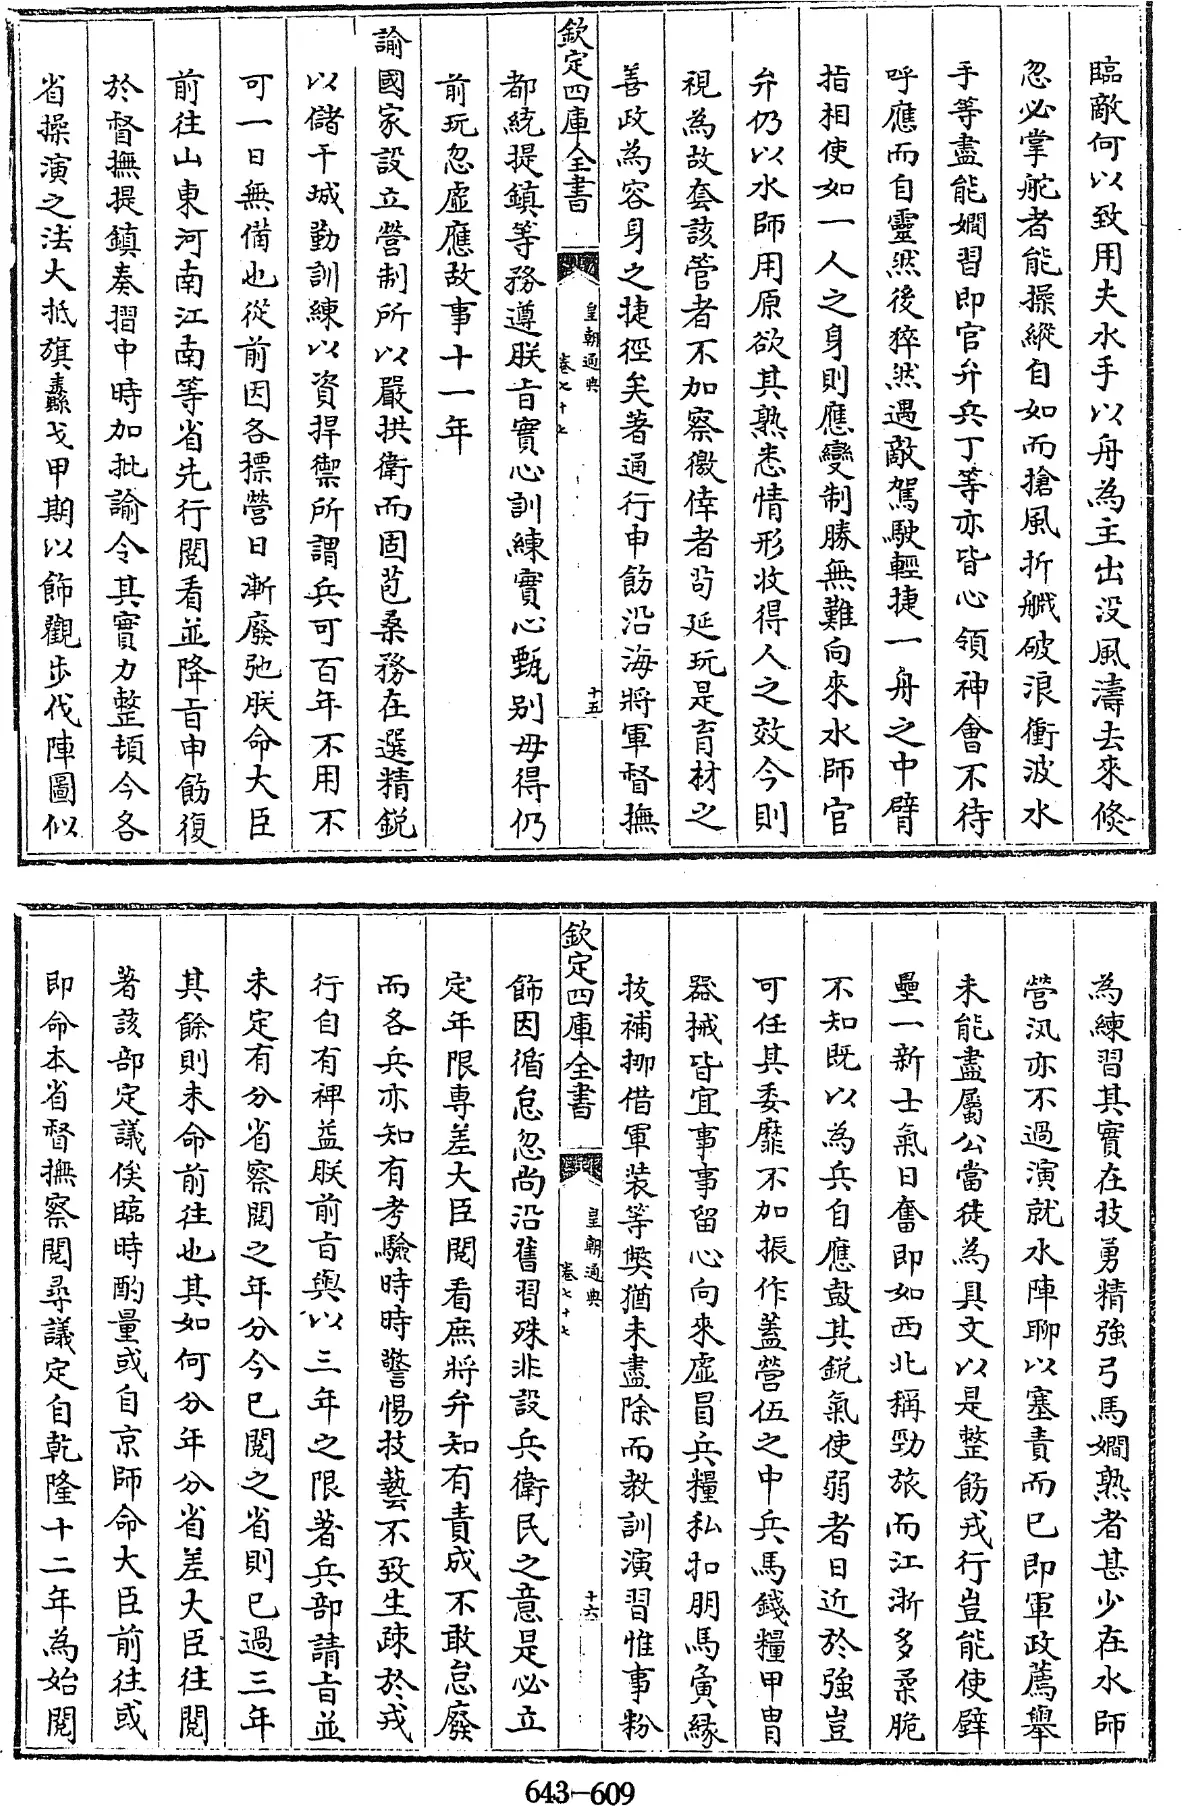 臨敵何以致用夫水手以舟為主出没風濤去來倐
忽必掌舵者能操縱自如而搶風折戧破浪衝波水
手等盡能嫺習即官弁兵丁等亦皆心領神會不待
呼應而自靈然後猝然遇敵駕駛輕捷一舟之中臂
指相使如一人之身則應變制勝無難向來水師官
弁仍以水師用原欲其熟悉情形收得人之效今則
視為故套該管者不加察徼倖者苟延玩是育材之
善政為容身之捷徑矣著通行申飭沿海將軍督撫
欽定四庫全書
皇朝通典
卷七十七
十五
都統提鎮等務遵朕旨實心訓練實心甄别毋得仍
前玩忽虛應故事十一年
諭國家設立營制所以嚴拱衛而固苞桑務在選精鋭
以儲干城勤訓練以資捍禦所謂兵可百年不用不
可一日無備也從前因各標營日漸廢弛朕命大臣
前往山東河南江南等省先行閲看並降旨申飭復
於督撫提鎮奏摺中時加批諭令其實力整頓今各
省操演之法大抵旗纛戈甲期以飾觀步伐陣圖似
為練習其實在技勇精強弓馬嫺熟者甚少在水師
營汛亦不過演就水陣聊以塞責而已即軍政薦舉
未能盡屬公當徒為具文以是整飭戎行豈能使壁
壘一新士氣日奮即如西北稱勁旅而江浙多柔脆
不知既以為兵自應鼓其鋭氣使弱者日近於強豈
可任其委靡不加振作蓋營伍之中兵馬錢糧甲胄
器械皆宜事事留心向來虛冒兵糧私扣朋馬夤緣
拔補挪借軍装等弊猶未盡除而教訓演習惟事粉
欽定四庫全書
皇朝通典
卷七十七
十六
飾因循怠忽尚沿舊習殊非設兵衛民之意是必立
定年限專差大臣閲看庶將弁知有責成不敢怠廢
而各兵亦知有考驗時時警惕技藝不致生疎於戎
行自有裨益朕前旨與以三年之限著兵部請旨並
未定有分省察閲之年分今已閲之省則已過三年
其餘則未命前往也其如何分年分省差大臣往閲
著該部定議俟臨時酌量或自京師命大臣前往或
即命本省督撫察閲尋議定自乾隆十二年為始閲
643-609